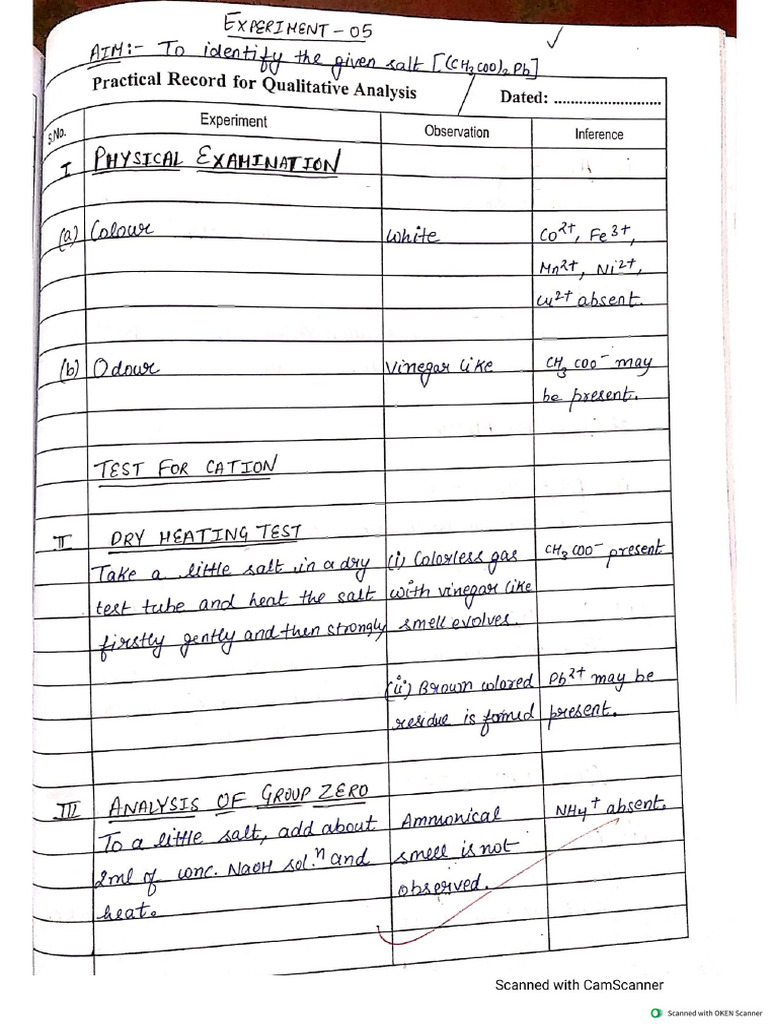 EXPERIMENT - 05
AIM:- To identify the given salt [(CH3COO)2 Pb]
Practical Record for Qualitative Analysis / Dated: ...........................
S.No. Experiment Observation Inference
I PHYSICAL EXAMINATION
(a) Colour White Co2+, Fe3+,
Mn2+, Ni2+,
Cu2+ absent.
(b) Odour Vinegar like CH3COO- may
be present.
TEST FOR CATION
II DRY HEATING TEST
Take a little salt in a dry (i) Colorless gas CH3COO- present
test tube and heat the salt with vinegar like
firstly gently and then strongly smell evolves.
(ii) Brown colored Pb2+ may be
residue is formed present.
III ANALYSIS OF GROUP ZERO
To a little salt, add about Ammonical NH4+ absent.
2ml of conc. NaOH sol.n and smell is not
heat. observed.
Scanned with CamScanner
Scanned with OKEN Scanner